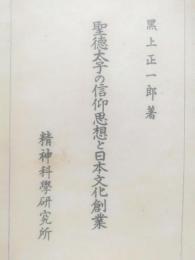 黑上正一郎著
聖德太子の信仰思想と日本文化創業
精神科學研究所